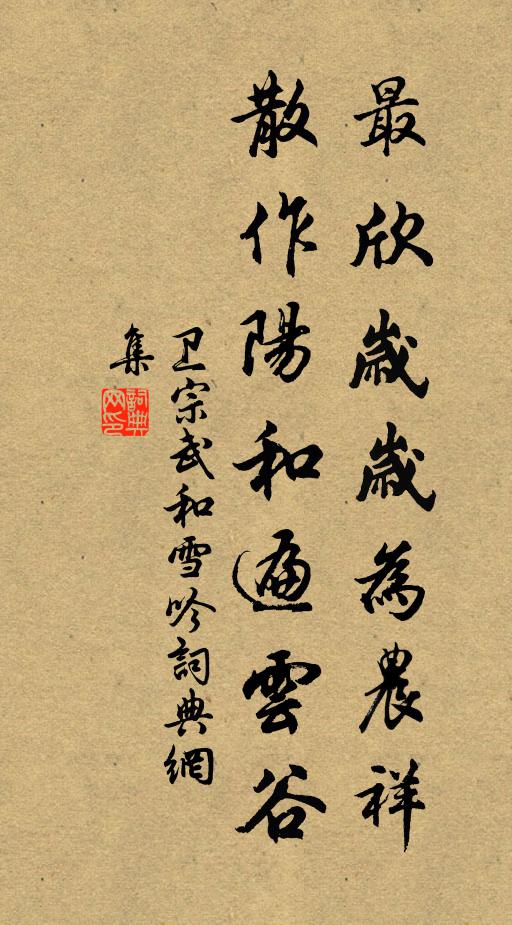 最欣歲歲為農祥
散作陽和遍雲谷
卫宗武和雪吟詞典網
集
詞典网印